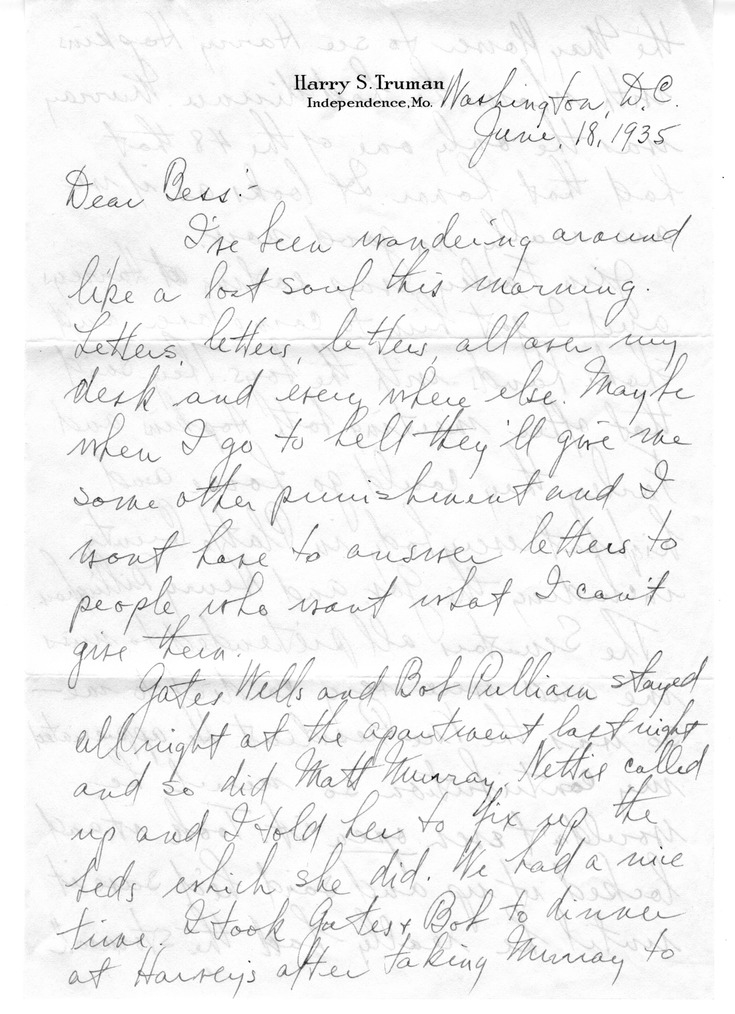 Harry S. Truman
Independence, Mo.
Washington, D.C.
June, 18, 1935
Dear Bess:-
I've been wandering around
like a lost soul this morning.
Letters, letters, letters, all over my
desk and every where else. Maybe
when I go to hell they'll give me
some other punishment and I
wont have to answer letters to
people who want what I can't
give them.
Gates Wells and Bob Pulliam stayed
all night at the apartment last night
and so did Matt Murray. Nettie called
up and I told her to fix up the
beds which she did. We had a nice
time. I took Gates & Bob to dinner
at Harveys after taking Murray to